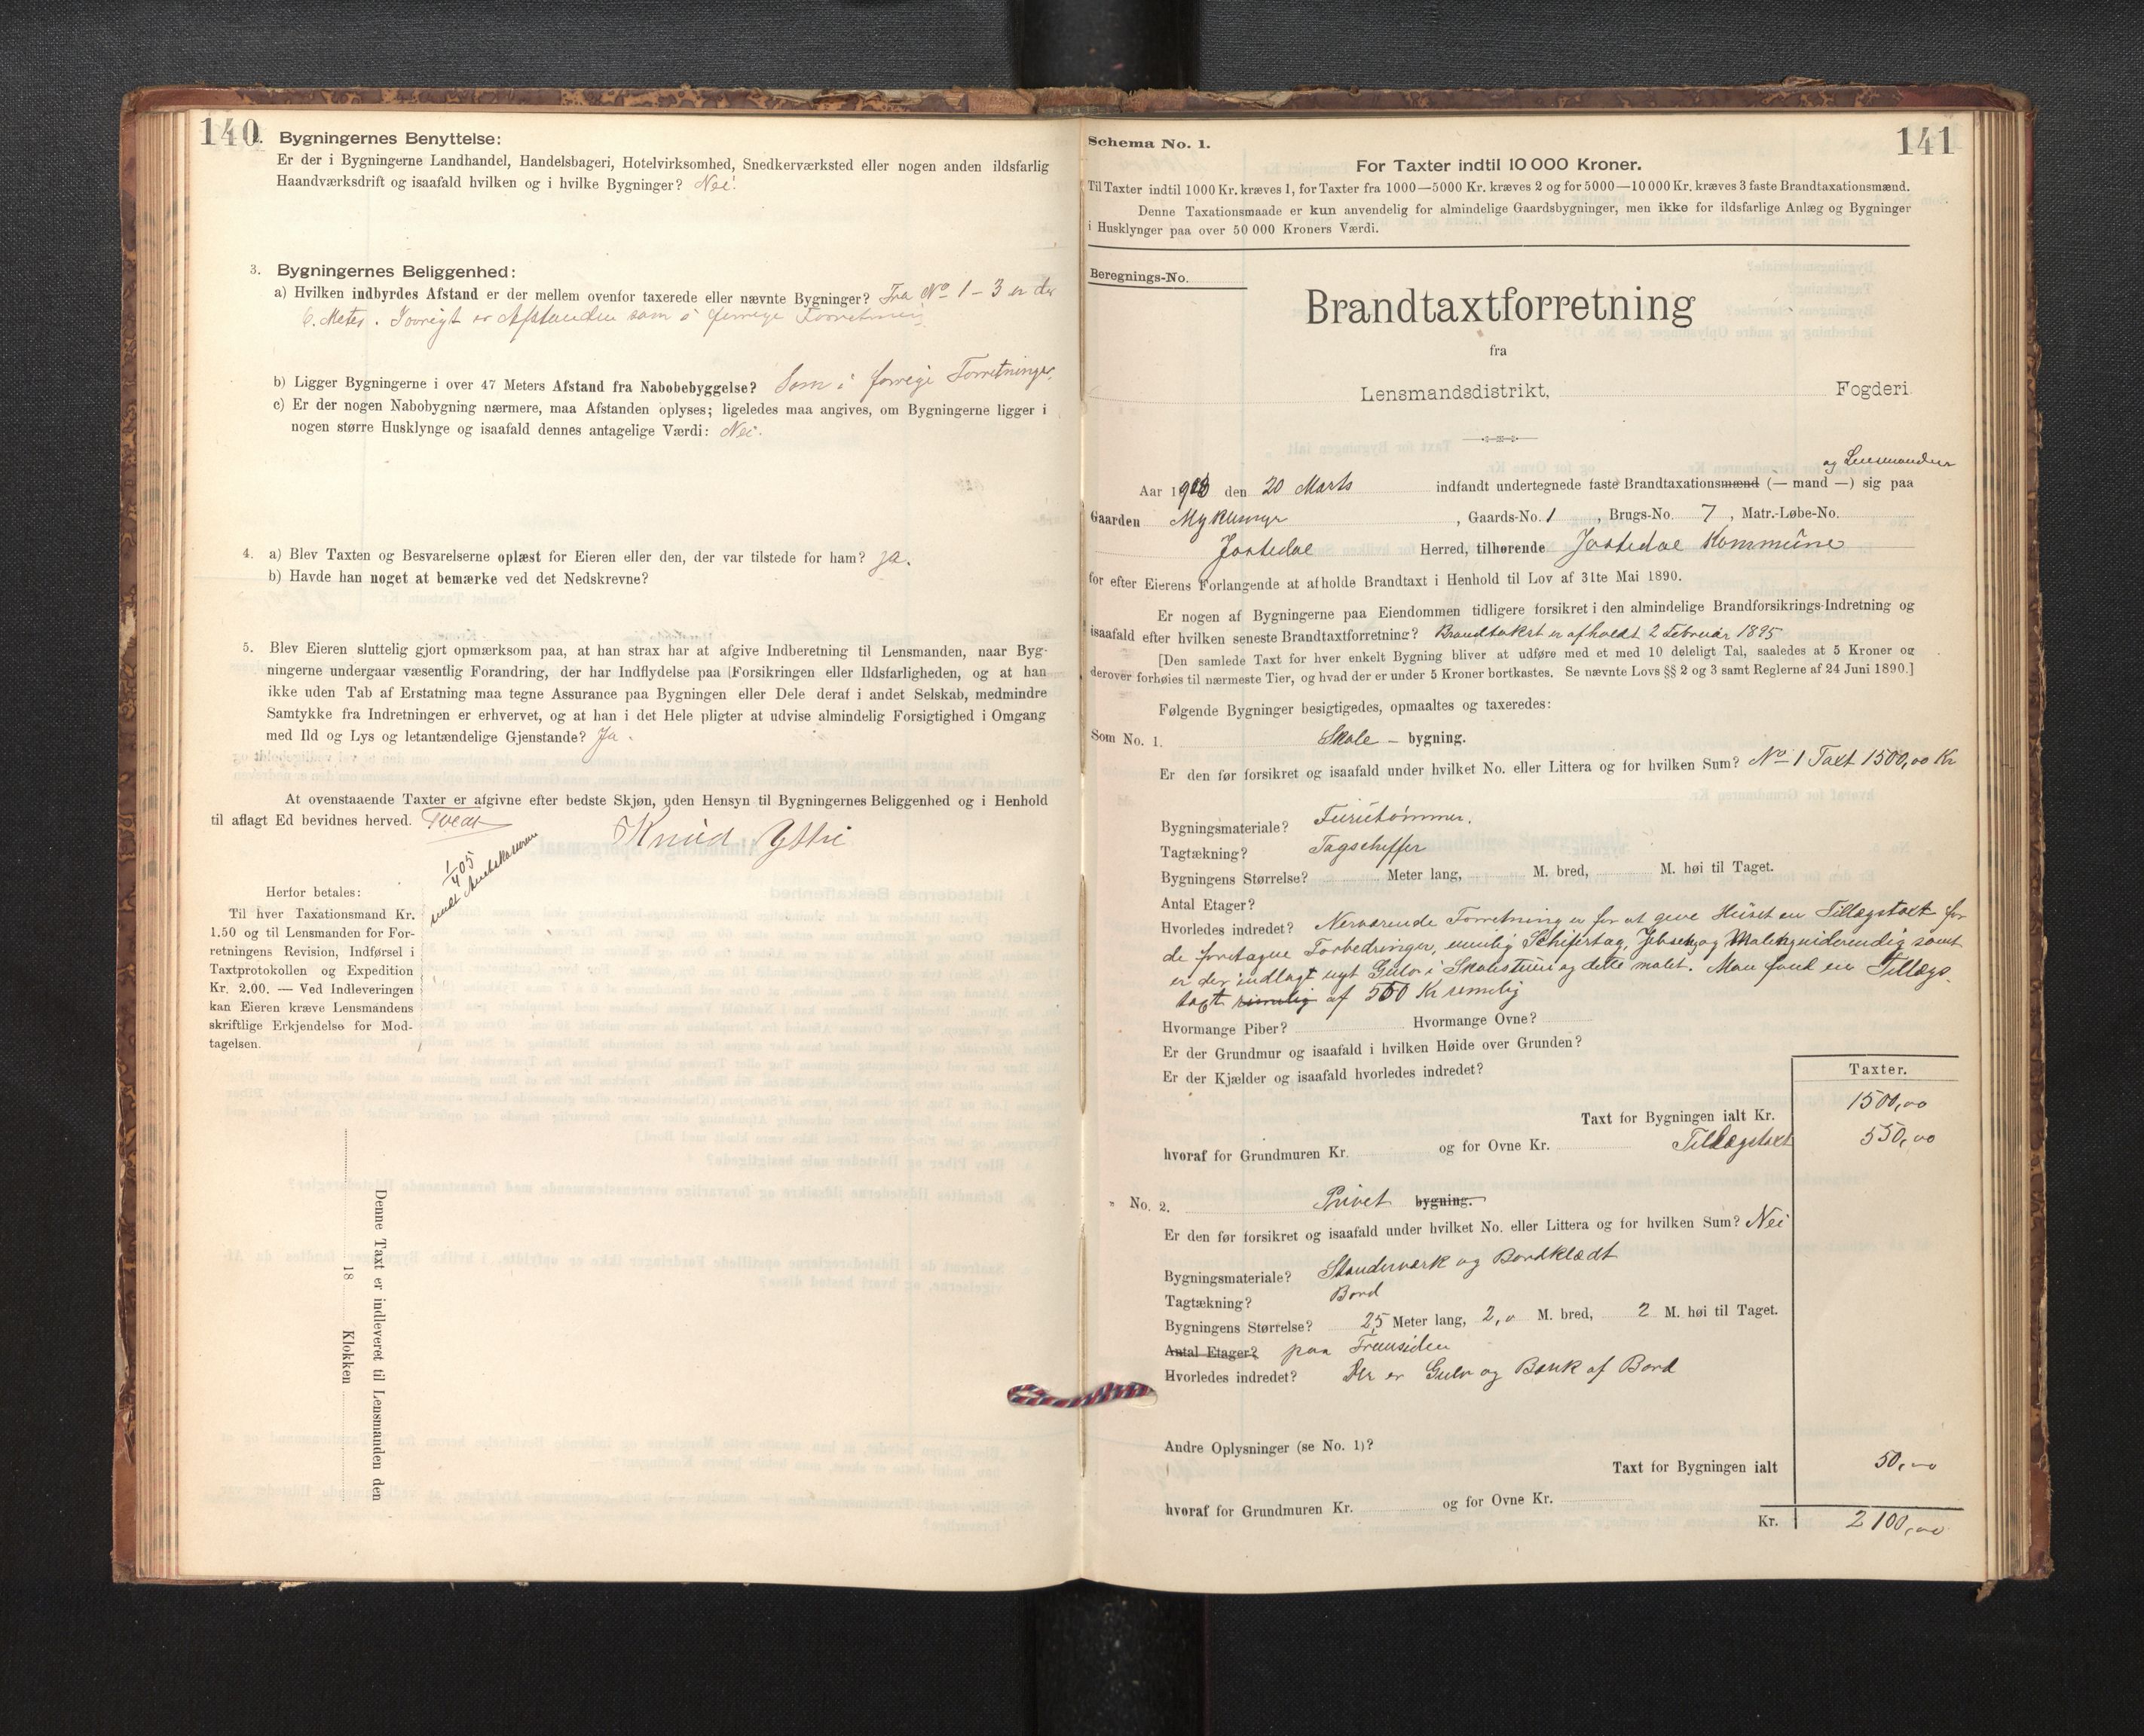 140
2. Bygningernes Benyttelse:
Er der i Bygningerne Landhandel, Handelsbageri, Hotelvirksomhed, Snedkerværksted eller nogen anden ildsfarlig
Haandværksdrift og isaafald hvilken og i hvilke Bygninger? Nei.
3. Bygningernes Beliggenhed:
a) Hvilken indbyrdes Afstand er der mellem ovenfor taxerede eller nævnte Bygninger? Fra No 1 - 3 er der
6. Meter. Iøvrigt er Afstanden som i forrige Forretning
b) Ligger Bygningerne i over 47 Meters Afstand fra Nabobebyggelse? Som i forrige Forretninger.
c) Er der nogen Nabobygning nærmere, maa Afstanden oplyses; ligeledes maa angives, om Bygningerne ligger i
nogen større Husklynge og isaafald dennes antagelige Værdi: Nei.
4. a) Blev Taxten og Besvarelserne oplæst for Eieren eller den, der var tilstede for ham? Ja.
b) Havde han noget at bemærke ved det Nedskrevne?
5. Blev Eieren sluttelig gjort opmærksom paa, at han strax har at afgive Indberetning til Lensmanden, naar Byg-
ningerne undergaar væsentlig Forandring, der har Indflydelse paa Forsikringen eller Ildsfarligheden, og at han
ikke uden Tab af Erstatning maa tegne Assurance paa Bygningen eller Dele deraf i andet Selskab, medmindre
Samtykke fra Indretningen er erhvervet, og at han i det Hele pligter at udvise almindelig Forsigtighed i Omgang
med Ild og Lys og letantændelige Gjenstande? Ja.
At ovenstaaende Taxter er afgivne efter bedste Skjøn, uden Hensyn til Bygningernes Beliggenhed og i Henhold
til aflagt Ed bevidnes herved. Tvedt
Knud Yttri
1/4 05
Herfor betales:
Til hver Taxationsmand Kr.
1.50 og til Lensmanden for For-
retningens Revision, Indførsel i
Taxtprotokollen og Expedition
Kr. 2.00. — Ved Indleveringen
kan Eieren kræve Lensmandens
skriftlige Erkjendelse for Mod-
tagelsen.
Denne Taxt er indleveret til Lensmanden den
18 Klokken
141
Schema No. 1.
For Taxter indtil 10 000 Kroner.
Til Taxter indtil 1000 Kr. kræves 1, for Taxter fra 1000—5000 Kr. kræves 2 og for 5000—10 000 Kr. kræves 3 faste Brandtaxationsmænd.
Denne Taxationsmaade er kun anvendelig for almindelige Gaardsbygninger, men ikke for ildsfarlige Anlæg og Bygninger
i Husklynger paa over 50 000 Kroners Værdi.
Beregnings-No.
Brandtaxtforretning
fra
Lensmandsdistrikt, Fogderi
og Lensmanden
Aar 1903 den 20 Marts indfandt undertegnede faste Brandtaxationsmænd (— mand —) sig paa
Gaarden Myklemyr, Gaards-No. 1, Brugs-No. 7, Matr.-Løbe-No.
Jostedal Herred, tilhørende Jostedal Kommune
for efter Eierens Forlangende at afholde Brandtaxt i Henhold til Lov af 31te Mai 1890.
Er nogen af Bygningerne paa Eiendommen tidligere forsikret i den almindelige Brandforsikrings-Indretning og
isaafald efter hvilken seneste Brandtaxtforretning? Brandtakst er afholdt 2 Februar 1895
[Den samlede Taxt for hver enkelt Bygning bliver at udføre med et med 10 deleligt Tal, saaledes at 5 Kroner og
derover forhøies til nærmeste Tier, og hvad der er under 5 Kroner bortkastes. Se nævnte Lovs §§ 2 og 3 samt Reglerne af 24 Juni 1890.]
Følgende Bygninger besigtigedes, opmaaltes og taxeredes:
Som No. 1. Skole - bygning.
Er den før forsikret og isaafald under hvilket No. eller Littera og for hvilken Sum? No 1 Taxt 1500,00 Kr
Bygningsmateriale? Furutømmer.
Tagtækning? Tagschiffer
Bygningens Størrelse? Meter lang, M. bred, M. høi til Taget.
Antal Etager?
Hvorledes indredet? Nerværende Forretning er for at give Huset en Tillægstaxt for
de foretagne Forbedringer, nemlig Schifertag, og Maling udvendig samt
er der indlagt nyt Gulv i Skolestuen og dette malet. Man fandt en Tillægs-
taxt rimelig af 550 Kr rimelig
Hvormange Piber? Hvormange Ovne?
Er der Grundmur og isaafald i hvilken Høide over Grunden?
Er der Kjælder og isaafald hvorledes indredet?
Taxter.
Taxt for Bygningen ialt Kr. 1500,00
hvoraf for Grundmuren Kr. og for Ovne Kr. Tillægstaxt 550,00
" No. 2. Privet bygning.
Er den før forsikret og isaafald under hvilket No. eller Littera og for hvilken Sum? Nei
Bygningsmateriale? Standerværk og Bordklædt
Tagtækning? Bord
Bygningens Størrelse? 2,5 Meter lang, 2,0 M. bred, 2 M. høi til Taget.
Antal Etager? paa Fremsiden
Hvorledes indredet? Der er Gulv og Bænk af Bord
Andre Oplysninger (se No. 1)?
Taxt for Bygningen ialt 50,00
hvoraf for Grundmuren Kr. og for Ovne Kr.
Kr. 2100,00